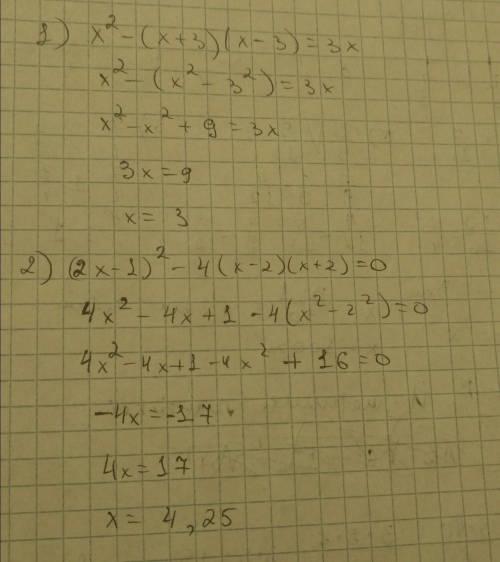 1) x² - (x+3)(x-3) = 3x
x² - (x² - 3²) = 3x
x² - x² + 9 = 3x
3x = 9
x = 3
2) (2x-1)² - 4(x-2)(x+2) = 0
4x² - 4x + 1 - 4(x² - 2²) = 0
4x² - 4x + 1 - 4x² + 16 = 0
-4x = -17
4x = 17
x = 4,25